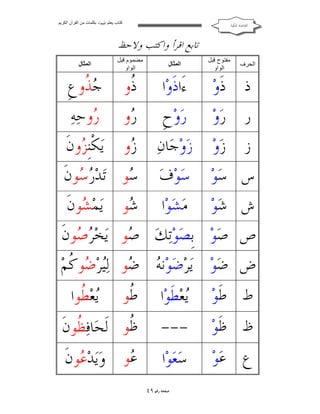 كتاب يعلم تهجئة بكلمات من القرآن الكريم
القاعدة المكية
تابع اقرأ واكتب ولاحظ
الحرف مفتوح قبل الواو المثال مضموم قبل الواو المثال
ذ ذَوْ ءَاذَوْا ذُو جُذُوعِ
ر رَوْ رَوْحِ رُو رُوحِهِ
ز زَوْ زَوْجَانِ زُو يَكْنِزُونَ
س سَوْ سَوْفَ سُو تَدْرُسُونَ
ش شَوْ مَشَوْا شُو يَمْشُونَ
ص صَوْ بِصَوْتِكَ صُو يَخْرُصُونَ
ض ضَوْ يَرْضَوْنَهُ ضُو لِيُرْضُوكُمْ
ط طَوْ يُعْطَوْا طُو يُعْطُوا
ظ ظَوْ --- ظُو لَحَافِظُونَ
ع عَوْ سَعَوْا عُو وَيَدْعُونَ
صفحة رقم ٤٩